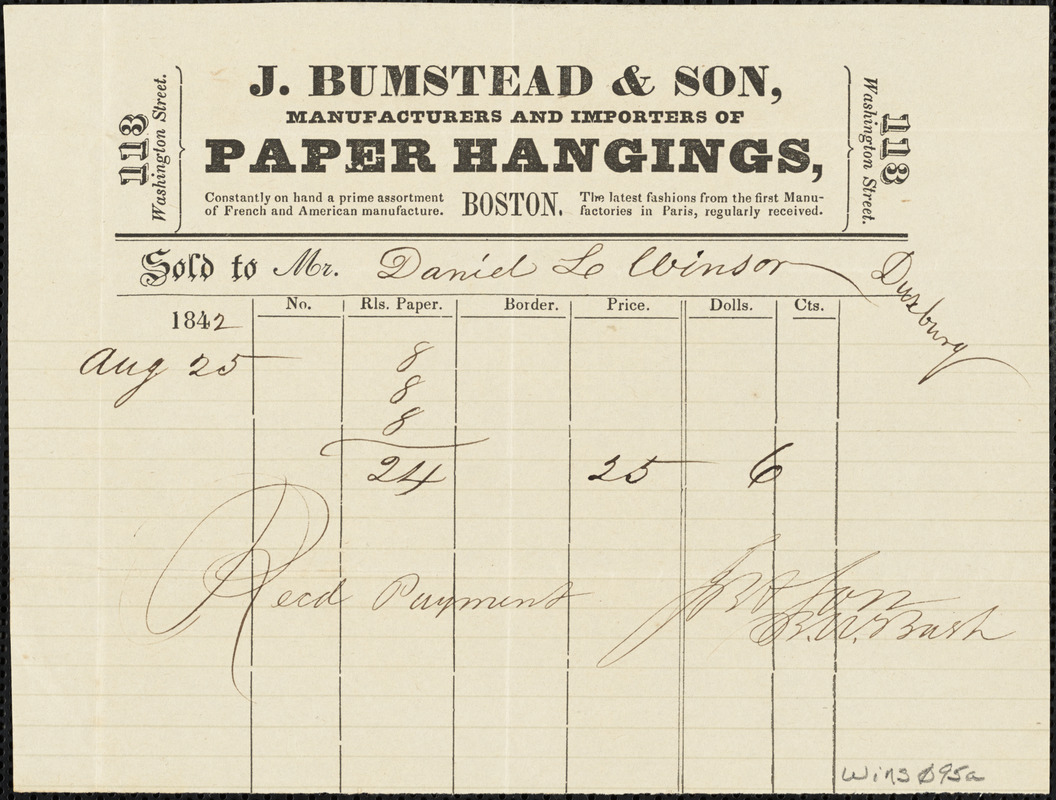 J. BUMSTEAD & SON,
MANUFACTURERS AND IMPORTERS OF
PAPER HANGINGS,
113
Washington Street.
113
Washington Street.
Constantly on hand a prime assortment
of French and American manufacture.
BOSTON.
The latest fashions from the first Manu-
factories in Paris, regularly received.
Sold to Mr. Daniel L Winsor Duxbury
No. Rls. Paper. Border. Price. Dolls. Cts.
1842
Aug 25 8
8
8
24 25 6
Recd Payment J B & Son
Wins 95a